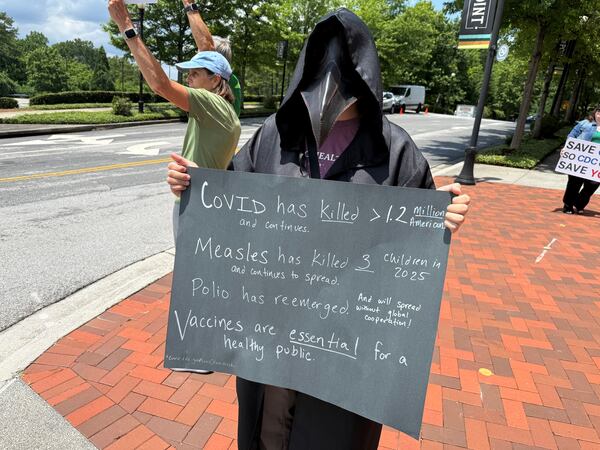 COVID has Killed >1.2 Million
and continues. Americans
Measles has killed 3 children in
and continues to spread. 2025
Polio has reemerged. And will spread
without global
cooperation!
Vaccines are essential for a
healthy public.
HEAL
SAVE
SO CDC
SAVE YO
INT